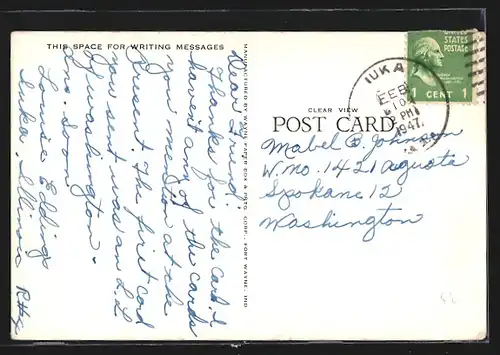 THIS SPACE FOR WRITING MESSAGES
Dear Friend:
Thanks for the card. I
haven't any of the cards
you mention at the
present. The first card
you sent was an L.L.
of Washington.
Ans. soon.
Louise Eddings
Iuka, Illinois
MANUFACTURED BY WAYNE PAPER BOX & PRTG. CORP., FORT WAYNE, IND
CLEAR VIEW
POST CARD
UNITED
STATES
POSTAGE
1 CENT 1
IUKA
FEB
10
PM
1947
Mabel B. Johnson
W. no. 1421 Agusta
Spokane 12
Washington